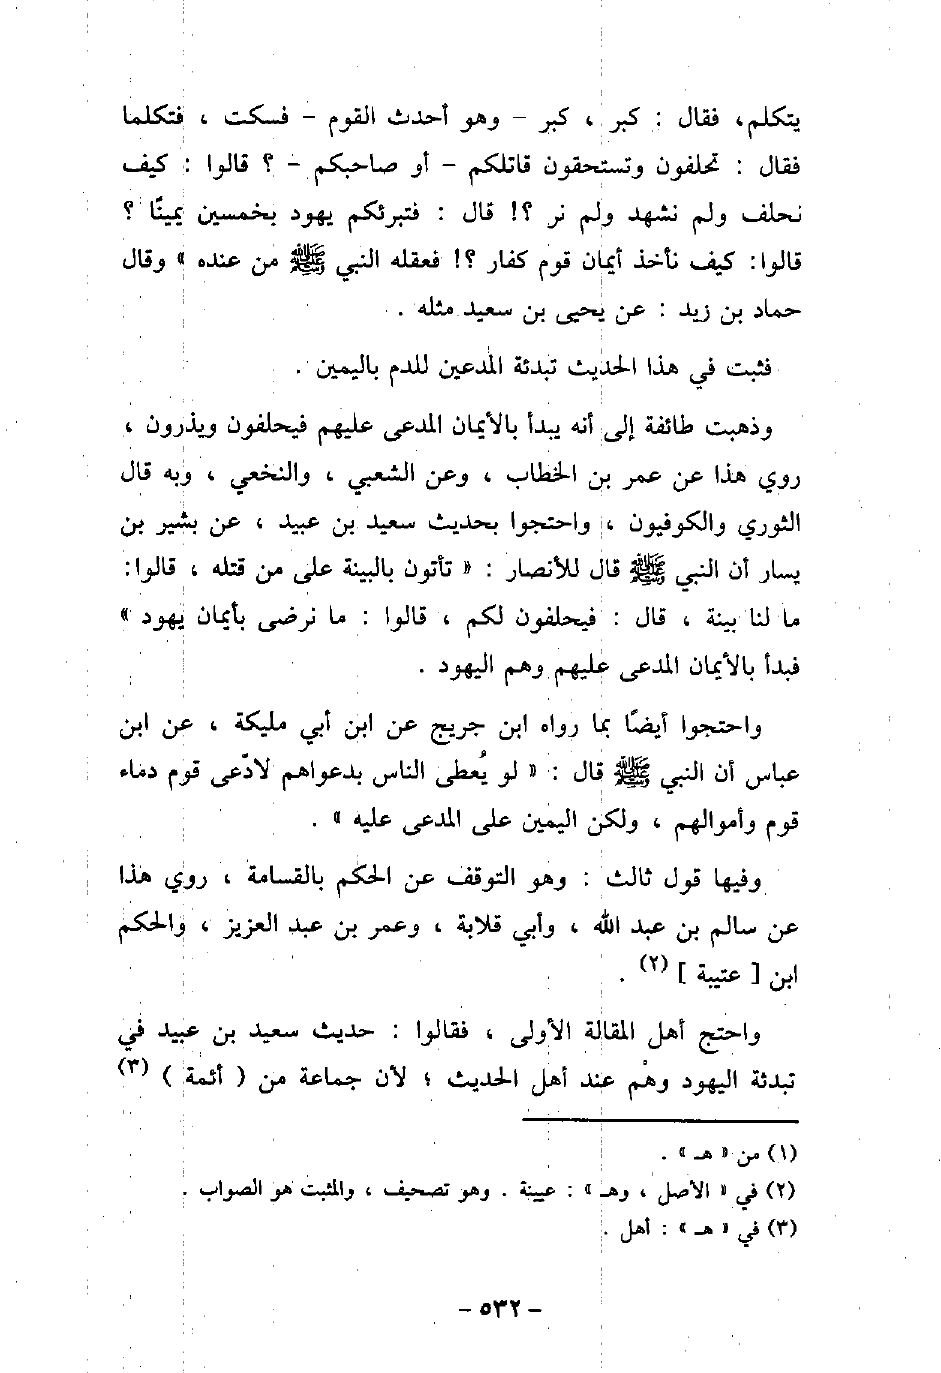 يتكلم، فقال : كبر ، كبر - وهو أحدث القوم - فسكت ، فتكلما
فقال : تحلفون وتستحقون قاتلكم - أو صاحبكم - ؟ قالوا : كيف
نحلف ولم نشهد ولم نر ؟! قال : فتبرئكم يهود بخمسين يمينًا ؟
قالوا: كيف نأخذ أيمان قوم كفار ؟! فعقله النبي ﷺ من عنده » وقال
حماد بن زيد : عن يحيى بن سعيد مثله .
فثبت في هذا الحديث تبدئة المدعين للدم باليمين .
وذهبت طائفة إلى أنه يبدأ بالأيمان المدعى عليهم فيحلفون ويذرون ،
روي هذا عن عمر بن الخطاب ، وعن الشعبي ، والنخعي ، وبه قال
الثوري والكوفيون ، واحتجوا بحديث سعيد بن عبيد ، عن بشير بن
يسار أن النبي ﷺ قال للأنصار : « تأتون بالبينة على من قتله ، قالوا:
ما لنا بينة ، قال : فيحلفون لكم ، قالوا : ما نرضى بأيمان يهود »
فبدأ بالأيمان المدعى عليهم وهم اليهود .
واحتجوا أيضًا بما رواه ابن جريج عن ابن أبي مليكة ، عن ابن
عباس أن النبي ﷺ قال : « لو يُعطى الناس بدعواهم لادّعى قوم دماء
قوم وأموالهم ، ولكن اليمين على المدعى عليه » .
وفيها قول ثالث : وهو التوقف عن الحكم بالقسامة ، روي هذا
عن سالم بن عبد الله ، وأبي قلابة ، وعمر بن عبد العزيز ، والحكم
ابن [ عتيبة ] (٢) .
واحتج أهل المقالة الأولى ، فقالوا : حديث سعيد بن عبيد في
تبدئة اليهود وهْم عند أهل الحديث ؛ لأن جماعة من ( أئمة ) (٣)
(١) من « هـ » .
(٢) في « الأصل ، وهـ » : عيينة . وهو تصحيف ، والمثبت هو الصواب .
(٣) في « هـ » : أهل .
- ٥٣٢ -